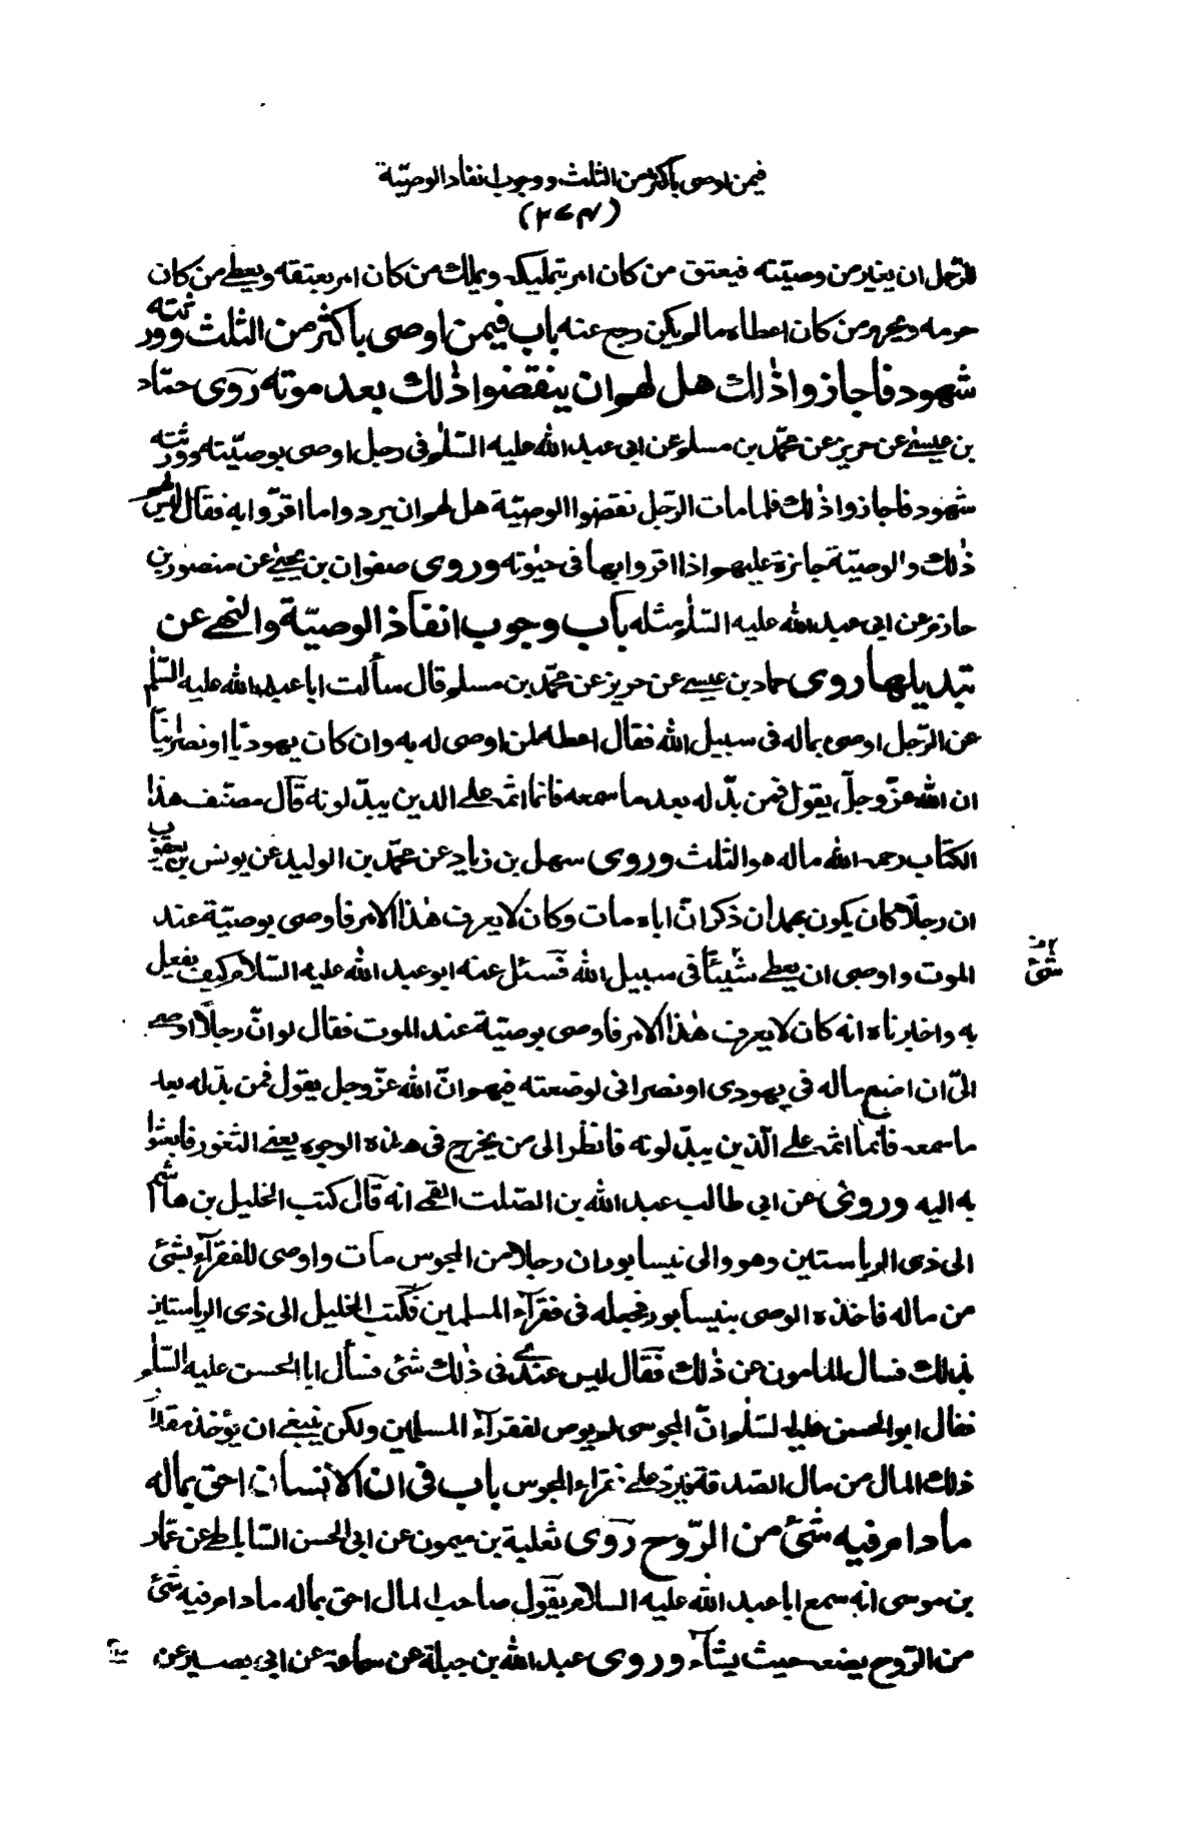 فيمن اوصى باكثر من الثلث ووجوب انفاد الوصيّة
(٢٧٤)
للرّجل ان يغير من وصيّته فيعتق من كان امر بتمليكه ويملك من كان امر بعتقه ويعطى من كان
حرمه ويحرم من كان اعطاه مالم يكن رجع عنه باب فيمن اوصى باكثر من الثلث وورثته
شهود فاجازوا ذٰلك هل لهم ان ينقضوا ذٰلك بعد موته روى حمّاد
بن عيسىٰ عن حريز عن محمّد بن مسلم عن ابى عبد الله عليه السّلٰم فى رجل اوصى بوصيّته وورثته
شهود فاجازوا ذٰلك فلما مات الرّجل نقضوا الوصيّة هل لهم ان يردوا ما اقرّوا به فقال ليس لهم
ذٰلك والوصيّة جائزة عليهم اذا اقروا بها فى حيٰوته وروى صفوان بن يحيىٰ عن منصور بن
حازم عن ابى عبد الله عليه السّلٰم مثله باب وجوب انفاذ الوصيّة والنهى عن
تبديلها روى حماد بن عيسى عن حريز عن محمّد بن مسلم قال سألت ابا عبد الله عليه السّلٰم
عن الرّجل اوصى بماله فى سبيل الله فقال اعطه لمن اوصى له به وان كان يهوديّا او نصرٰنيّا
ان الله عزّ وجلّ يقول فمن بدّله بعد ما سمعه فانما اثمه على الذين يبدّلونه قال مصنّف هذا
الكتاب رحمه الله ماله هو الثلث وروى سهل بن زياد عن محمّد بن الوليد عن يونس بن يعقوب
ان رجلًا كان يكون بهمدان ذكر انّ اباه مات وكان لا يعرف هٰذا الامر فاوصى بوصيّة عند
الموت واوصى ان يعطى شيئًا فى سبيل الله فسئل عنه ابو عبد الله عليه السّلام كيف يفعل
شئ
به واخبرناه انه كان لا يعرف هٰذا الامر فاوصى بوصيّة عند الموت فقال لو انّ رجلًا اوصى
الىّ ان اضع ماله فى يهودى او نصرانى لوضعته فيهم انّ الله عزّ وجل يقول فمن بدّله بعد
ما سمعه فانّما اثمه على الّذين يبدّلونه فانظر الى من يخرج فى هذه الوجوه يعنى الثغور فابعثوا
به اليه وروى عن ابى طالب عبد الله بن الصّلت القمى انه قال كتب الخليل بن هاشم
الى ذى الرياستين وهو والى نيسابور ان رجلا من المجوس مات واوصى للفقرآء بشئ
من ماله فاخذه الوصى بنيسابور فجعله فى فقرآء المسلمين فكتب الخليل الى ذى الرياستين
بذلك فسال المامون عن ذٰلك فقال ليس عندى فى ذٰلك شئ فسأل ابا الحسن عليه السّلٰم
فقال ابو الحسن عليه السّلٰم انّ المجوسى لم يوص لفقرآء المسلمين ولكن ينبغى ان يؤخذ مقدار
ذلك المال من مال الصّدقة فيردّ على فقراء المجوس باب فى ان الانسان احق بماله
ما دام فيه شئ من الرّوح روى ثعلبة بن ميمون عن ابى الحسن السّاباطى عن عمّار
بن موسى انه سمع ابا عبد الله عليه السلام يقول صاحب المال احق بماله ما دام فيه شئ
من الرّوح يضعه حيث يشآء وروى عبد الله بن جبلة عن سماعة عن ابى بصير عن